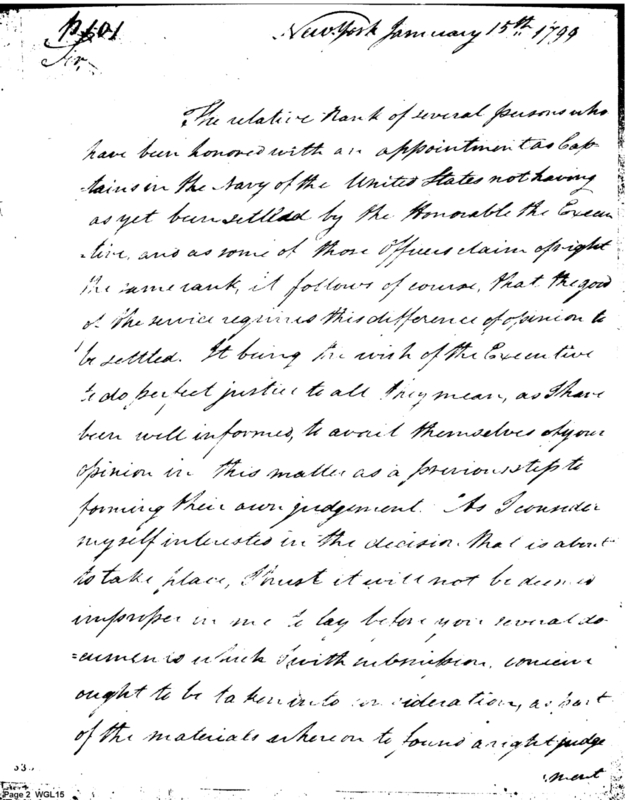 New York January 15th 1799
Sir,
The relative Rank of several persons who
have been honored with an appointment as Cap
tains in the Navy of the United States not having
as yet been settled by the Honorable the Execu
tive, and as some of those Officers claim of right
the same rank, it follows of course, that the good
of the service requires this difference of opinion to
be settled. It being the wish of the Executive
to do perfect justice to all they mean, as I have
been well informed, to avail themselves of your
opinion in this matter as a previous step to
forming their own judgement. As I consider
myself interested in the decision that is about
to take place, I trust it will not be deemed
improper in me to lay before you several do
=cuments which I with submission, conceive
ought to be taken into consideration, as part
of the materials whereon to found a right judge
ment
Page 2 WGL15